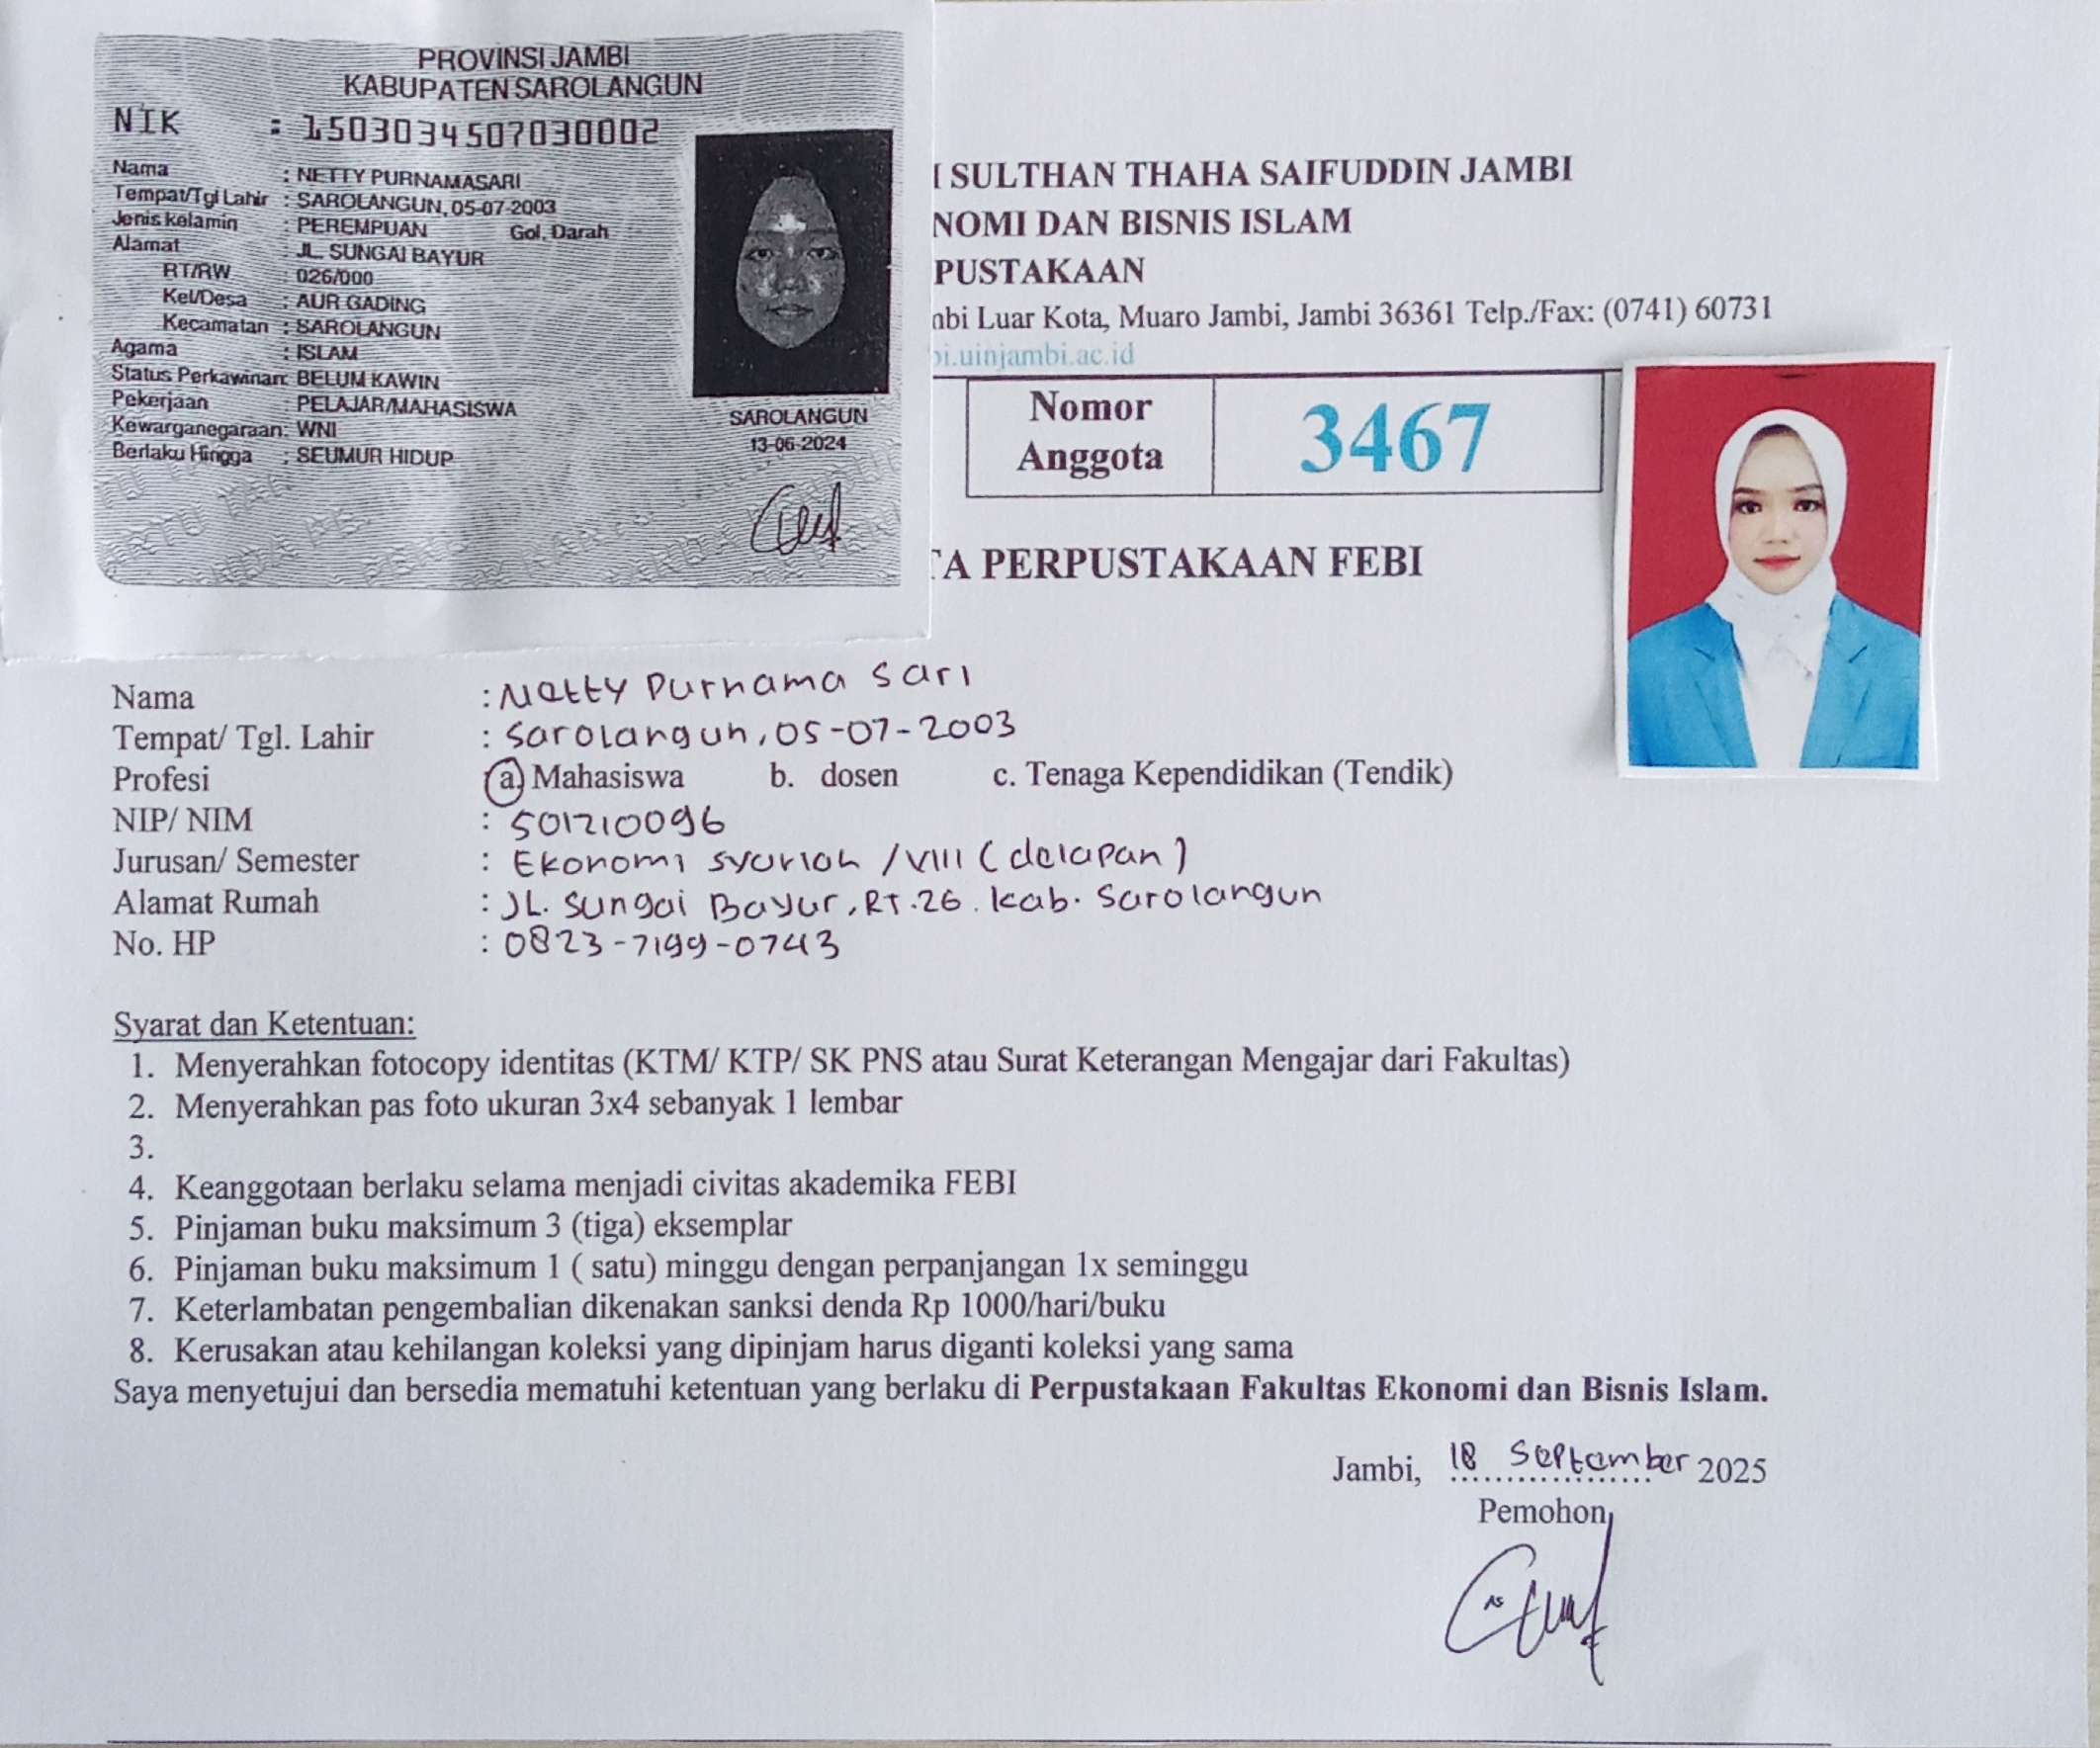 PROVINSI JAMBI
KABUPATEN SAROLANGUN
NIK : 1503034507030002
Nama : NETTY PURNAMASARI
Tempat/Tgl Lahir : SAROLANGUN, 05-07-2003
Jenis kelamin : PEREMPUAN Gol. Darah
Alamat : JL. SUNGAI BAYUR
RT/RW : 026/000
Kel/Desa : AUR GADING
Kecamatan : SAROLANGUN
Agama : ISLAM
Status Perkawinan: BELUM KAWIN
Pekerjaan : PELAJAR/MAHASISWA
Kewarganegaraan: WNI
Berlaku Hingga : SEUMUR HIDUP
SAROLANGUN
13-06-2024
I SULTHAN THAHA SAIFUDDIN JAMBI
NOMI DAN BISNIS ISLAM
PUSTAKAAN
nbi Luar Kota, Muaro Jambi, Jambi 36361 Telp./Fax: (0741) 60731
i.uinjambi.ac.id
Nomor
Anggota
3467
TA PERPUSTAKAAN FEBI
Nama : Netty Purnama Sari
Tempat/ Tgl. Lahir : Sarolangun, 05-07-2003
Profesi a. Mahasiswa b. dosen c. Tenaga Kependidikan (Tendik)
NIP/ NIM : 501210096
Jurusan/ Semester : Ekonomi syariah /VIII (delapan)
Alamat Rumah : JL. Sungai Bayur, RT.26. kab. Sarolangun
No. HP : 0823-7199-0743
Syarat dan Ketentuan:
1. Menyerahkan fotocopy identitas (KTM/ KTP/ SK PNS atau Surat Keterangan Mengajar dari Fakultas)
2. Menyerahkan pas foto ukuran 3x4 sebanyak 1 lembar
3.
4. Keanggotaan berlaku selama menjadi civitas akademika FEBI
5. Pinjaman buku maksimum 3 (tiga) eksemplar
6. Pinjaman buku maksimum 1 ( satu) minggu dengan perpanjangan 1x seminggu
7. Keterlambatan pengembalian dikenakan sanksi denda Rp 1000/hari/buku
8. Kerusakan atau kehilangan koleksi yang dipinjam harus diganti koleksi yang sama
Saya menyetujui dan bersedia mematuhi ketentuan yang berlaku di Perpustakaan Fakultas Ekonomi dan Bisnis Islam.
Jambi, 18 September 2025
Pemohon,